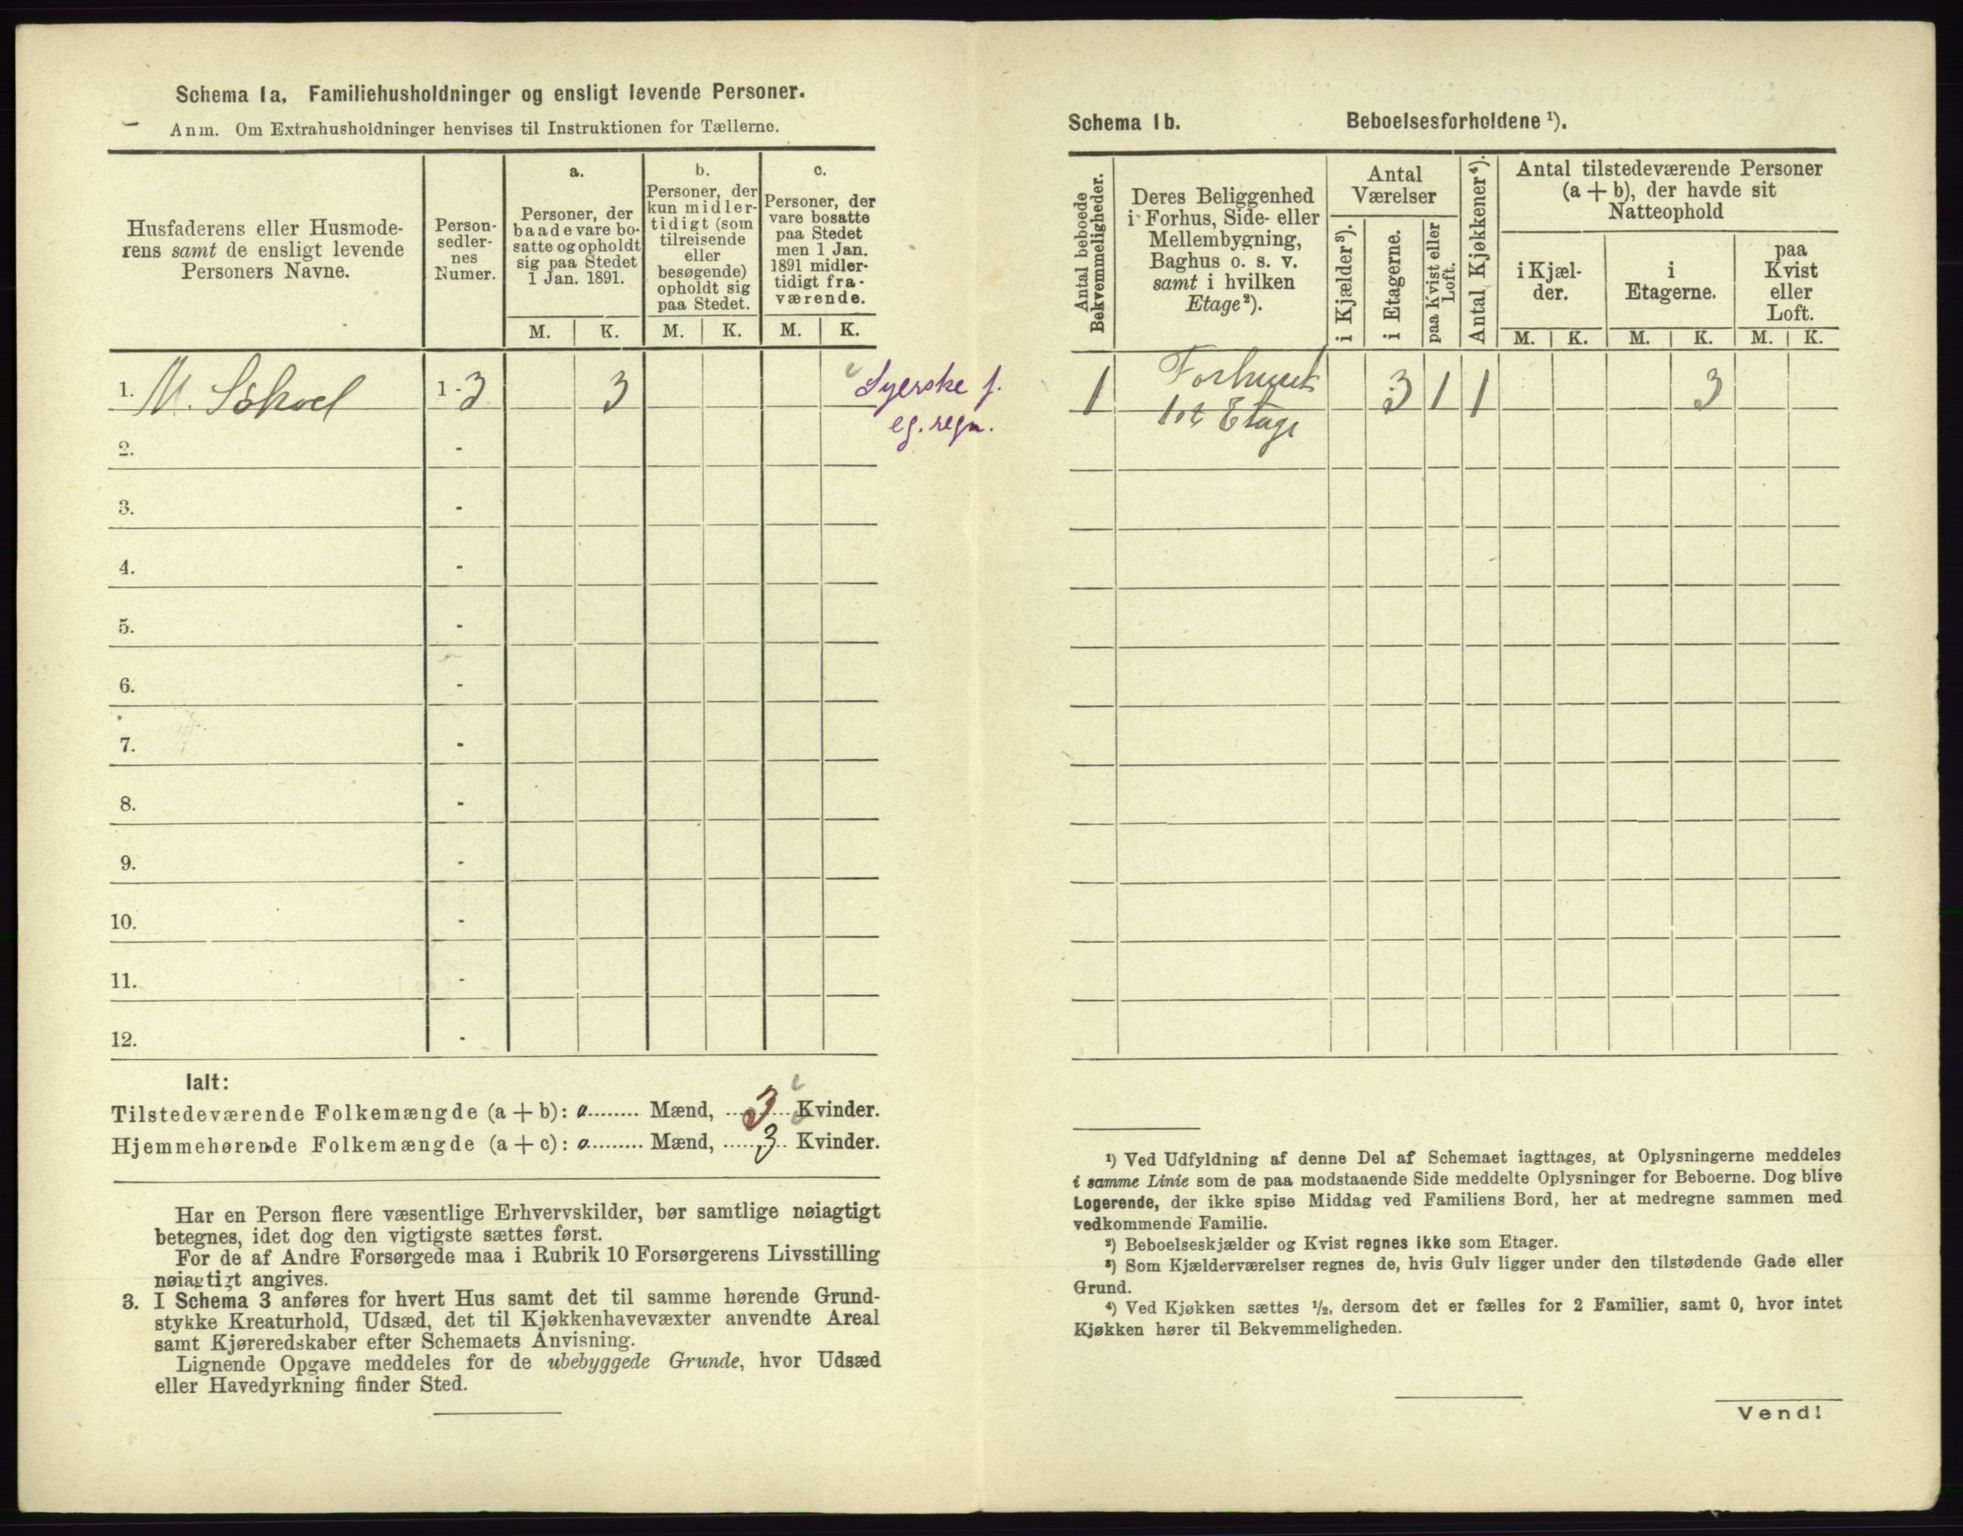 Schema 1a. Familiehusholdninger og ensligt levende Personer.
Anm. Om Extrahusholdninger henvises til Instruktionen for Tællerne.
Husfaderens eller Husmode-
rens samt de ensligt levende
Personers Navne.
Person-
sedler-
nes
Numer.
a.
Personer, der
baade vare bo-
satte og opholdt
sig paa Stedet
1 Jan. 1891.
b.
Personer, der
kun midler-
tidigt (som
tilreisende
eller
besøgende)
opholdt sig
paa Stedet.
c.
Personer, der
vare bosatte
paa Stedet
men 1 Jan.
1891 midler-
tidigt fra-
værende.
M. K. M. K. M. K.
1. M. Schoel 1-3 3 Syerske f.
eg. regn.
2. -
3. -
4. -
5. -
6. -
7. -
8. -
9. -
10. -
11. -
12. -
Ialt:
Tilstedeværende Folkemængde (a + b): 0 Mænd, 3 Kvinder.
Hjemmehørende Folkemængde (a + c): 0 Mænd, 3 Kvinder.
Har en Person flere væsentlige Erhvervskilder, bør samtlige nøiagtigt
betegnes, idet dog den vigtigste sættes først.
For de af Andre Forsørgede maa i Rubrik 10 Forsørgerens Livsstilling
nøiagtigt angives.
3. I Schema 3 anføres for hvert Hus samt det til samme hørende Grund-
stykke Kreaturhold, Udsæd, det til Kjøkkenhavevæxter anvendte Areal
samt Kjøreredskaber efter Schemaets Anvisning.
Lignende Opgave meddeles for de ubebyggede Grunde, hvor Udsæd
eller Havedyrkning finder Sted.
Schema 1b. Beboelsesforholdene ¹).
Antal beboede
Bekvemmeligheder.
Deres Beliggenhed
i Forhus, Side- eller
Mellembygning,
Baghus o. s. v.
samt i hvilken
Etage²).
Antal
Værelser
i Kjælder³).
i Etagerne.
paa Kvist eller
Loft.
Antal Kjøkkener⁴).
Antal tilstedeværende Personer
(a + b), der havde sit
Natteophold
i Kjæl-
der.
i
Etagerne.
paa
Kvist
eller
Loft.
M. K. M. K. M. K.
1 Forhuset 3 1 1 3
1st Etage
¹) Ved Udfyldning af denne Del af Schemaet iagttages, at Oplysningerne meddeles
i samme Linie som de paa modstaaende Side meddelte Oplysninger for Beboerne. Dog blive
Logerende, der ikke spise Middag ved Familiens Bord, her at medregne sammen med
vedkommende Familie.
²) Beboelseskjælder og Kvist regnes ikke som Etager.
³) Som Kjælderværelser regnes de, hvis Gulv ligger under den tilstødende Gade eller
Grund.
⁴) Ved Kjøkken sættes ½, dersom det er fælles for 2 Familier, samt 0, hvor intet
Kjøkken hører til Bekvemmeligheden.
Vend!